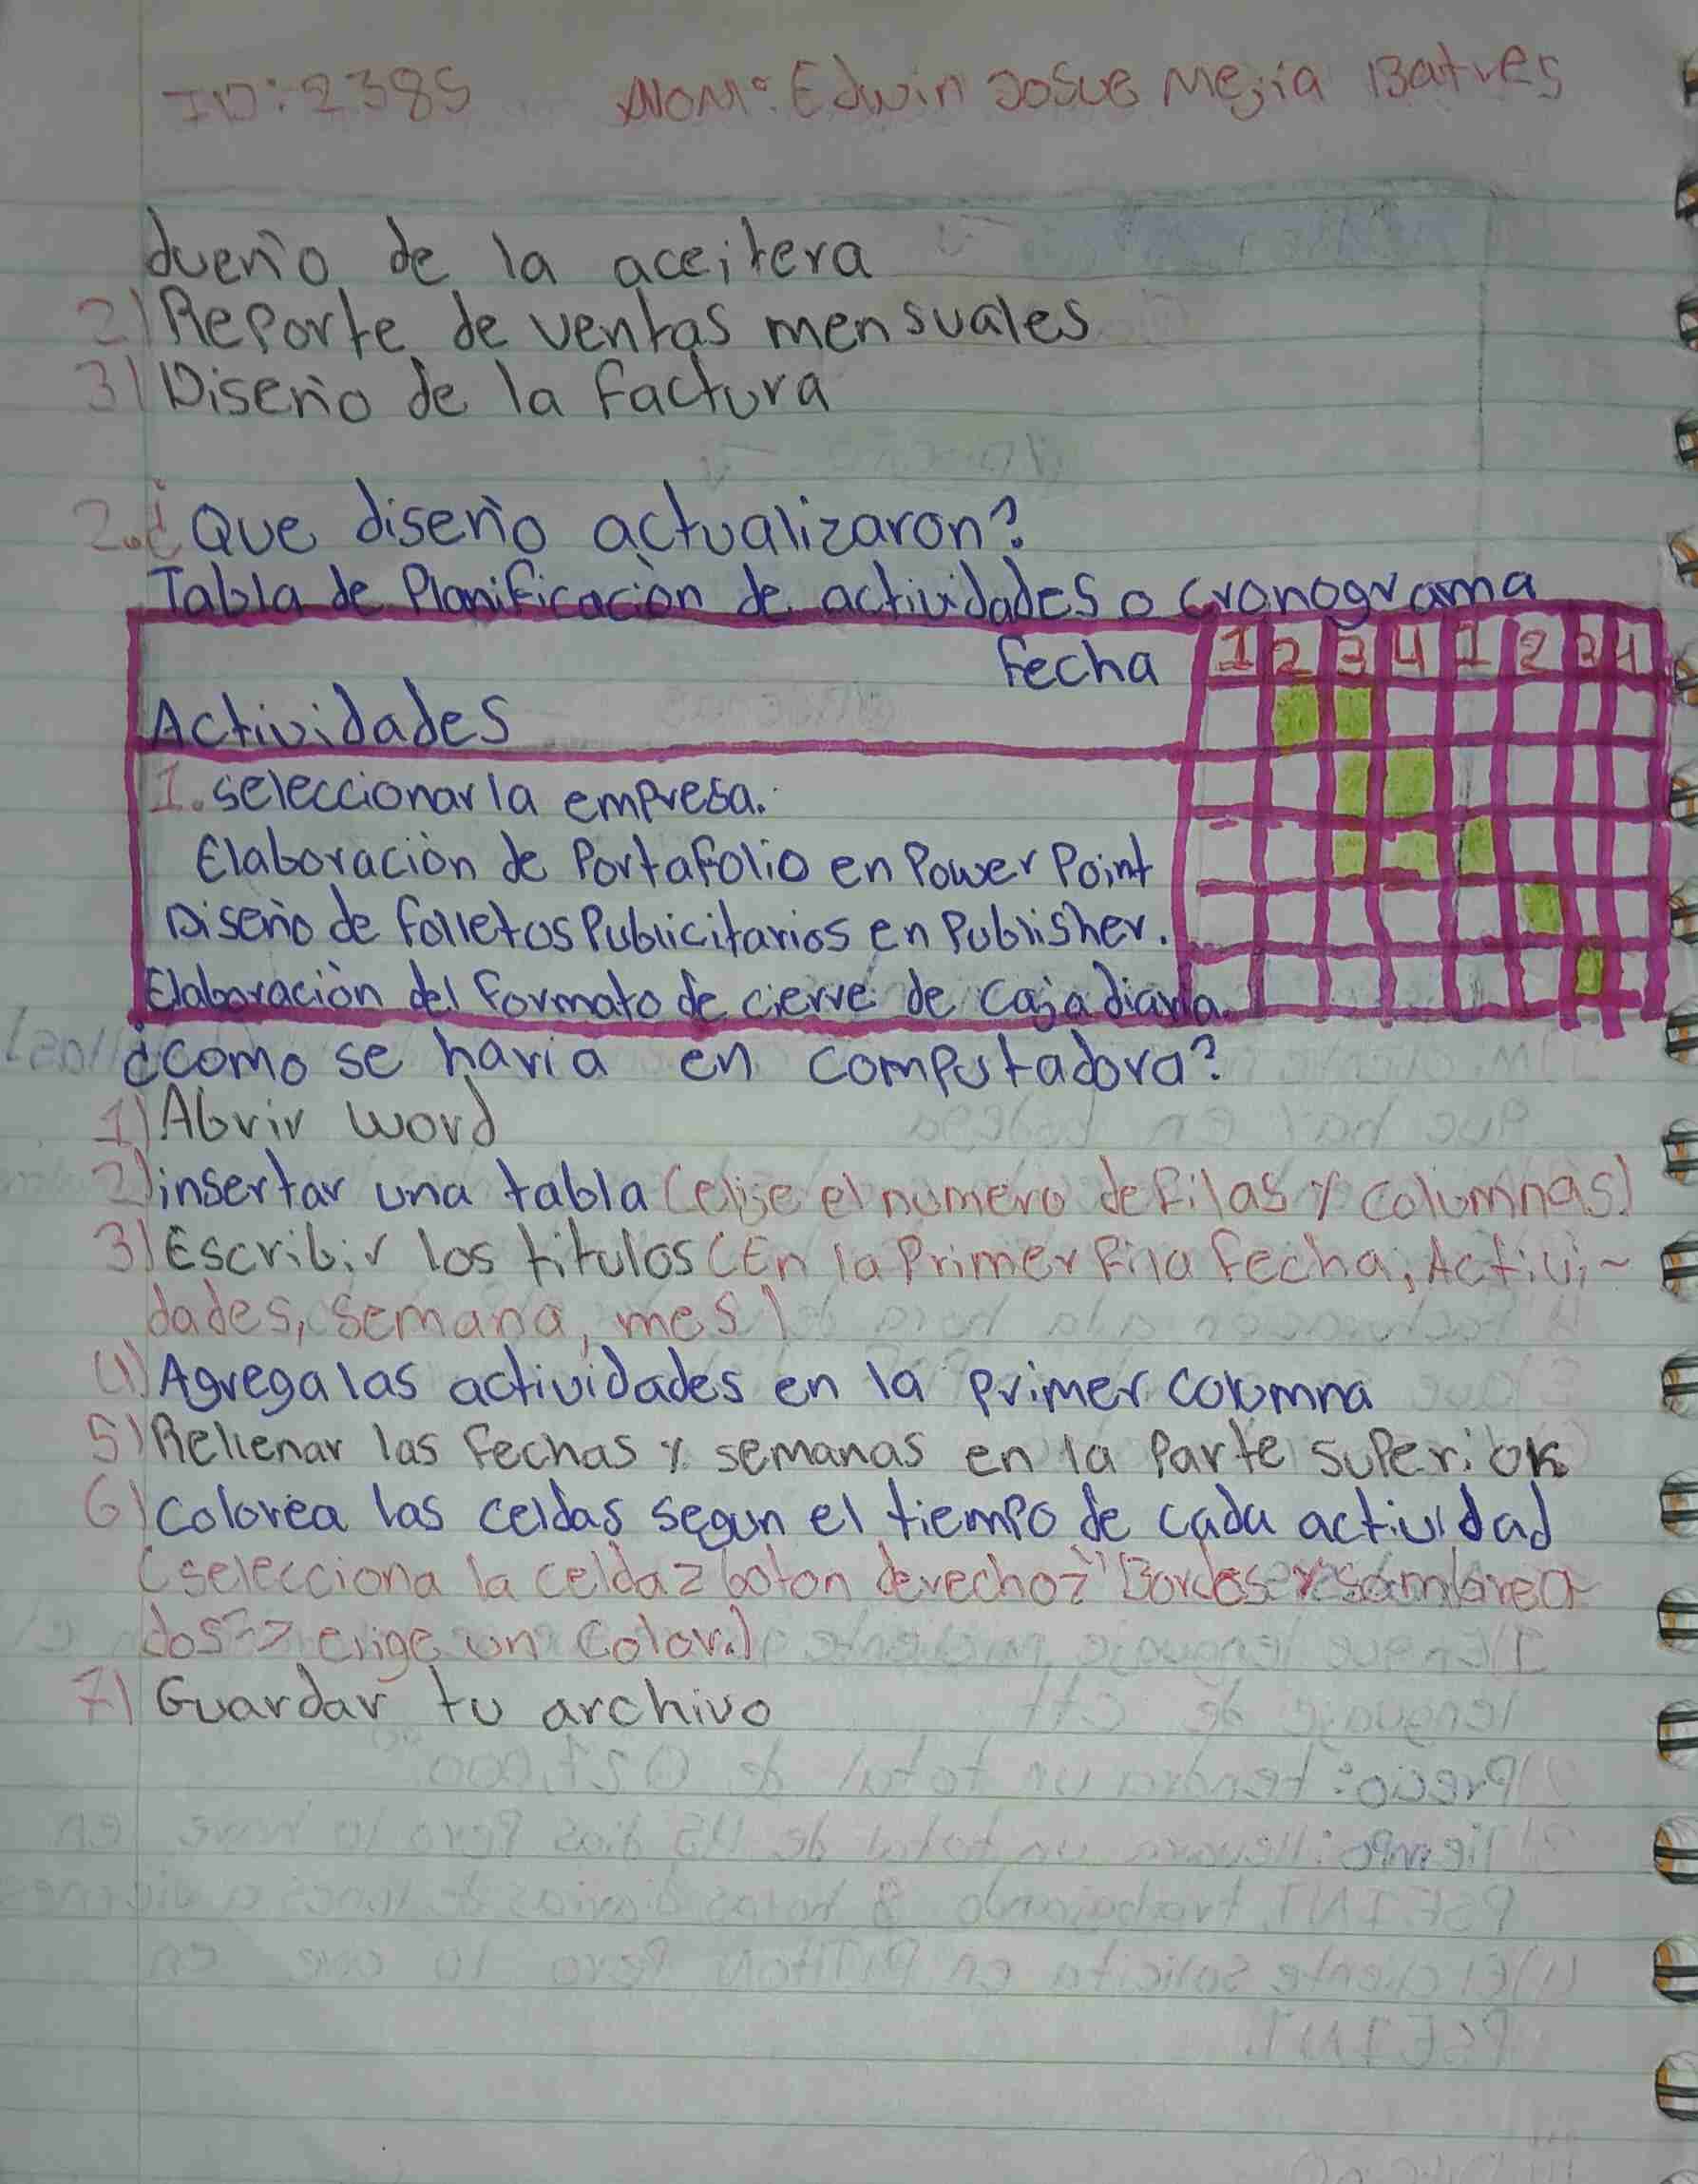 ID: 2385 NOM: Edwin Josue Mejia Batres
dueño de la aceitera
2) Reporte de ventas mensuales
3) Diseño de la factura
2. ¿Que diseño actualizaron?
Tabla de Planificación de actividades o cronograma
Fecha 1 2 3 4 1 2 3 4
Actividades
1. seleccionar la empresa.
Elaboración de Portafolio en Power Point
Diseño de folletos Publicitarios en Publisher.
Elaboración del formato de cierre de caja diaria.
¿como se haria en computadora?
1) Abrir word
2) insertar una tabla (elije el numero de filas y columnas)
3) Escribir los titulos (En la Primer fila fecha, Activi-
dades, semana, mes)
4) Agrega las actividades en la primer columna
5) Rellenar las fechas y semanas en la Parte superior
6) colorea las celdas segun el tiempo de cada actividad
(selecciona la celda > boton derecho > "Bordes y sombrea
dos" > elige un color.)
7) Guardar tu archivo